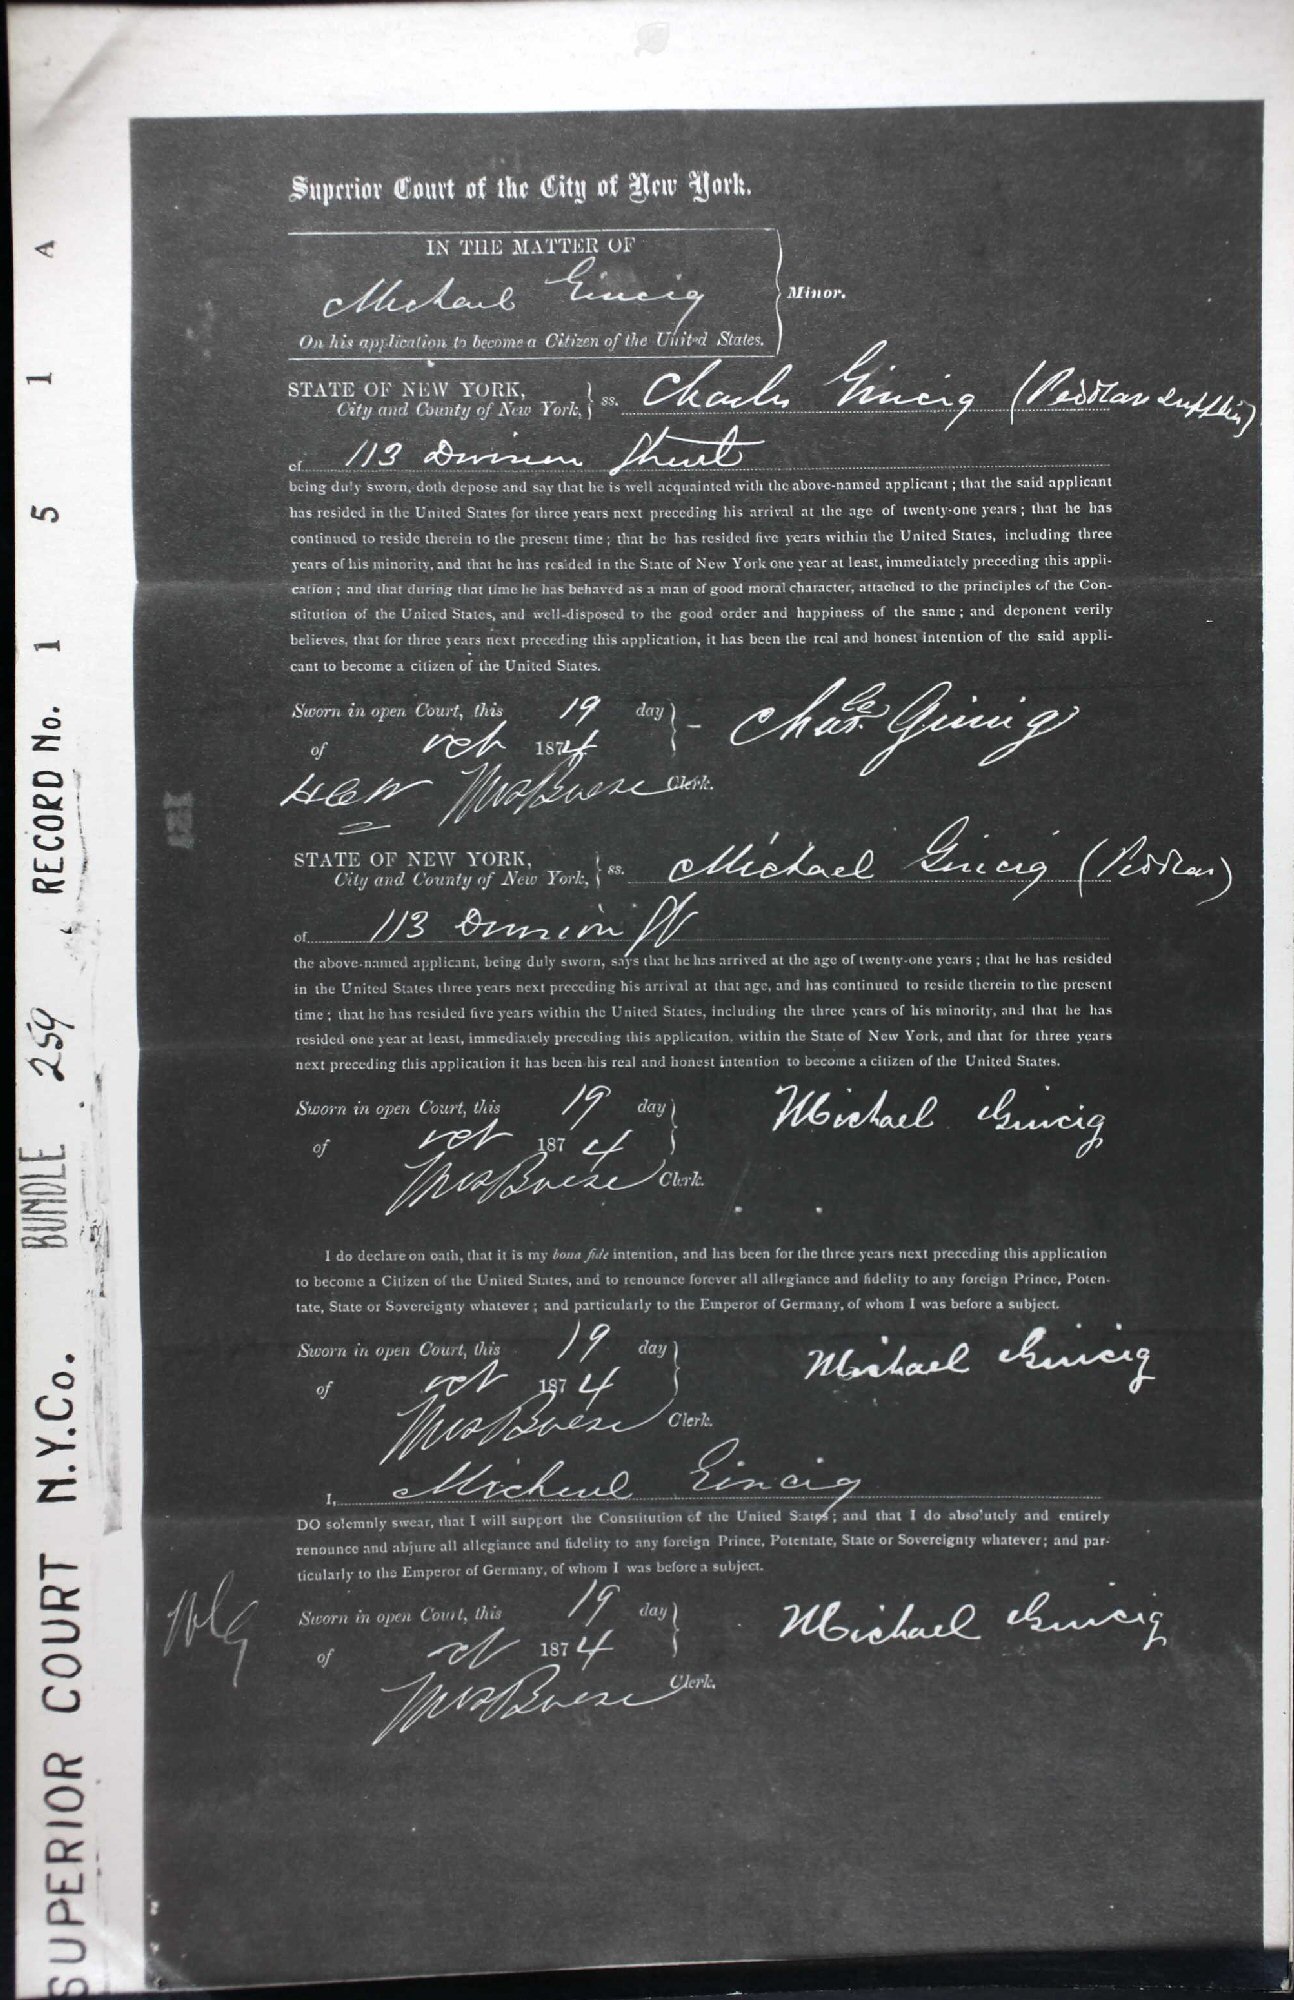 Superior Court of the City of New York.
IN THE MATTER OF
Michael Gincig
Minor.
On his application to become a Citizen of the United States.
STATE OF NEW YORK,
City and County of New York, ss. Charles Gincig (Peddlar Supplies)
of 113 Division Street
being duly sworn, doth depose and say that he is well acquainted with the above-named applicant; that the said applicant
has resided in the United States for three years next preceding his arrival at the age of twenty-one years; that he has
continued to reside therein to the present time; that he has resided five years within the United States, including three
years of his minority, and that he has resided in the State of New York one year at least, immediately preceding this appli-
cation; and that during that time he has behaved as a man of good moral character, attached to the principles of the Con-
stitution of the United States, and well-disposed to the good order and happiness of the same; and deponent verily
believes, that for three years next preceding this application, it has been the real and honest intention of the said appli-
cant to become a citizen of the United States.
Sworn in open Court, this 19 day
of Oct 1874
Chas Gincig
Clerk.
STATE OF NEW YORK,
City and County of New York, ss. Michael Gincig (Peddlar)
of 113 Division St
the above-named applicant, being duly sworn, says that he has arrived at the age of twenty-one years; that he has resided
in the United States three years next preceding his arrival at that age, and has continued to reside therein to the present
time; that he has resided five years within the United States, including the three years of his minority, and that he has
resided one year at least, immediately preceding this application, within the State of New York, and that for three years
next preceding this application it has been his real and honest intention to become a citizen of the United States.
Sworn in open Court, this 19 day
of Oct 1874
Michael Gincig
Clerk.
I do declare on oath, that it is my bona fide intention, and has been for the three years next preceding this application
to become a Citizen of the United States, and to renounce forever all allegiance and fidelity to any foreign Prince, Poten-
tate, State or Sovereignty whatever; and particularly to the Emperor of Germany, of whom I was before a subject.
Sworn in open Court, this 19 day
of Oct 1874
Michael Gincig
Clerk.
I, Michael Gincig
DO solemnly swear, that I will support the Constitution of the United States; and that I do absolutely and entirely
renounce and abjure all allegiance and fidelity to any foreign Prince, Potentate, State or Sovereignty whatever; and par-
ticularly to the Emperor of Germany, of whom I was before a subject.
Sworn in open Court, this 19 day
of Oct 1874
Michael Gincig
Clerk.
SUPERIOR COURT N.Y.Co. BUNDLE 259 RECORD No. 1 5 1 A